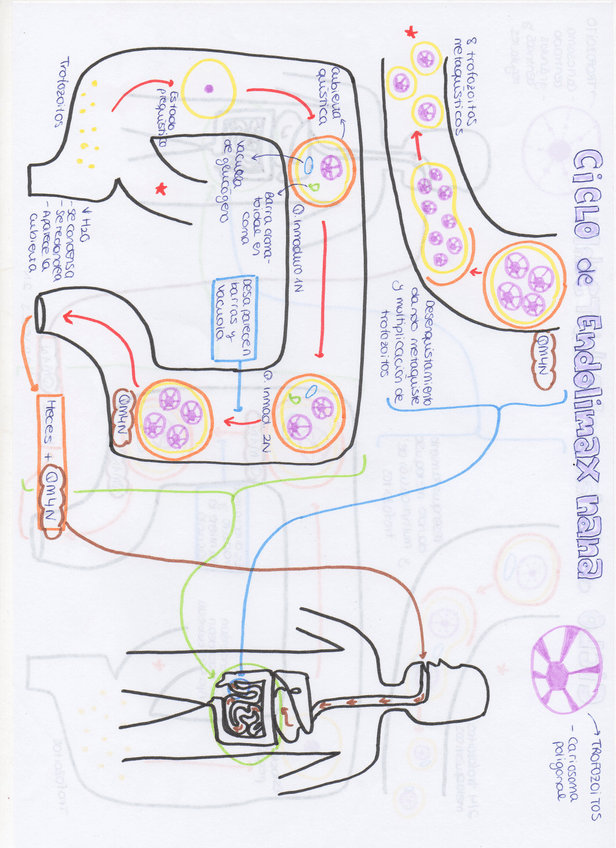 CICLO de Endolimax nana
TROFOZOITOS
- Cariosoma
poligonal
8 trofozoitos
metaquísticos
QM4N
Desenquistamiento
dando metaquiste
y multiplicación de
trofozoitos
Cubierta
quística
Q. Inmaduro 1N
Barra croma-
toidal en
coma
Vacuola
de glucógeno
Estado
prequístico
Trofozoitos
↓ H2O
- Se condensa
- Se redondea
- Aparece la
cubierta
Desaparecen
barras y
vacuola
Q. Inmad. 2N
QM4N
Heces + QM4N